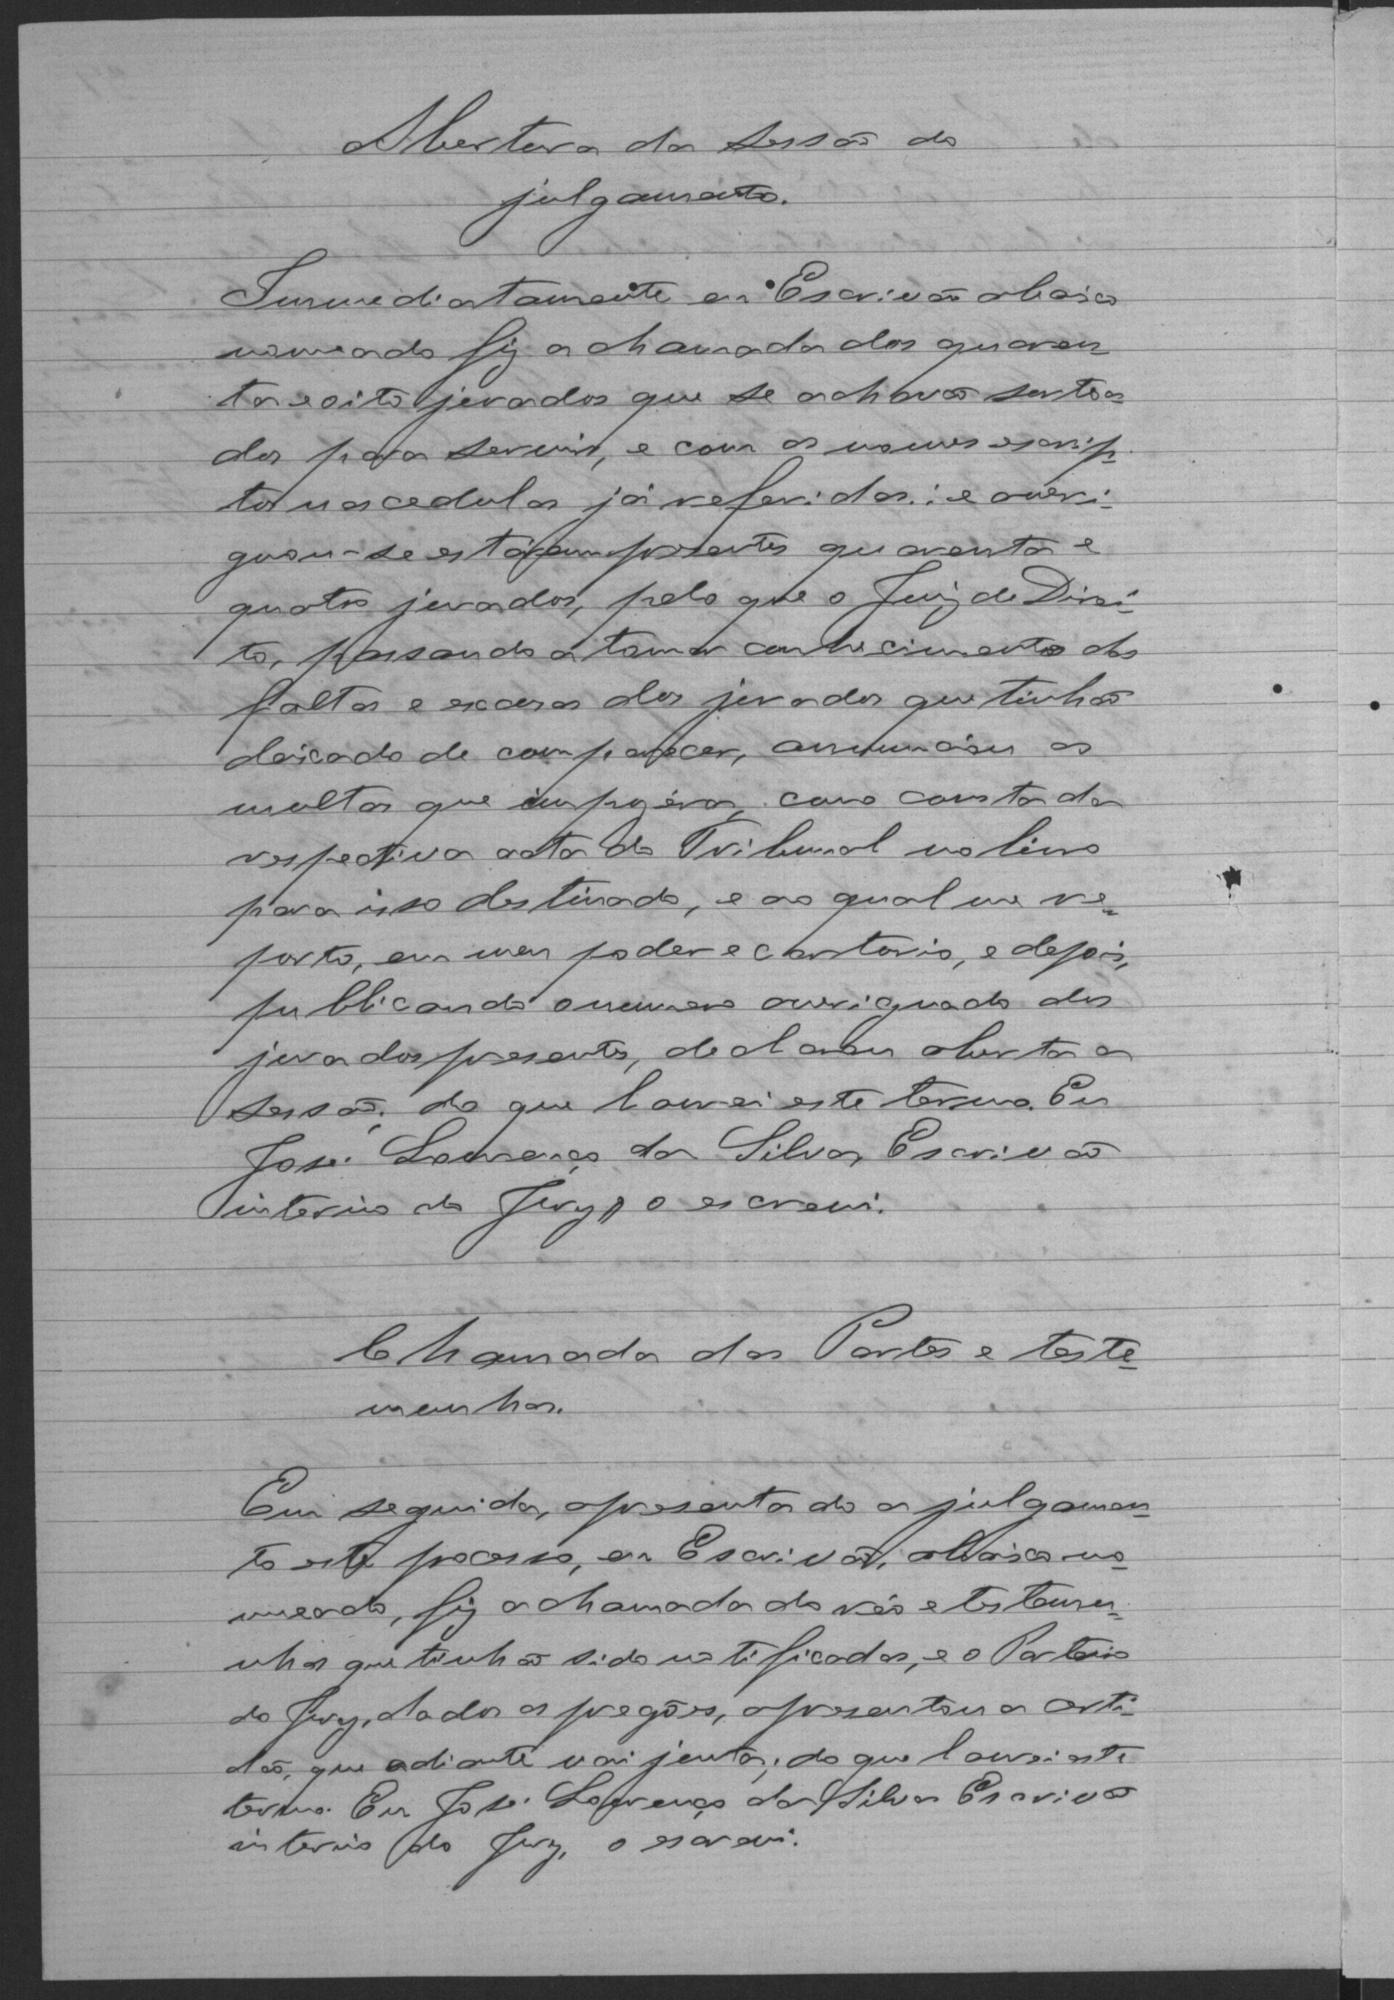 Abertura da sessão do
julgamento.
Immediatamente eu Escrivão abaixo
nomeado fiz a chamada dos quaren-
ta e oito jurados que se achavão sortea-
dos para servir, e com os nomes escrip-
tos nas cedulas já referidas; e averi-
guou-se estarem presentes quarenta e
quatro jurados, pelo que o Juiz de Direi-
to, passando a tomar conhecimento das
faltas e excusas dos jurados que tinhão
deixado de comparecer, annunciou as
multas que impozéra, como consta da
respectiva acta do Tribunal no livro
para isso destinado, e ao qual me re-
porto, em meu poder e cartorio, e depois,
publicando o numero averiguado dos
jurados presentes, declarou aberta a
sessão; do que lavrei este termo. Eu
José Lourenço da Silva, Escrivão
interino do Jury, o escrevi.
Chamada das Partes e teste-
munhas.
Em seguida, apresentado a julgamen-
to este processo, eu Escrivão, abaixo no-
meado, fiz a chamada do réo e testemu-
nhas que tinhão sido notificadas, e o Porteiro
do Jury, dados os pregões, apresentou a certi-
dão, que adiante vai junta; do que lavrei este
termo. Eu José Lourenço da Silva Escrivão
interino do Jury, o escrevi.